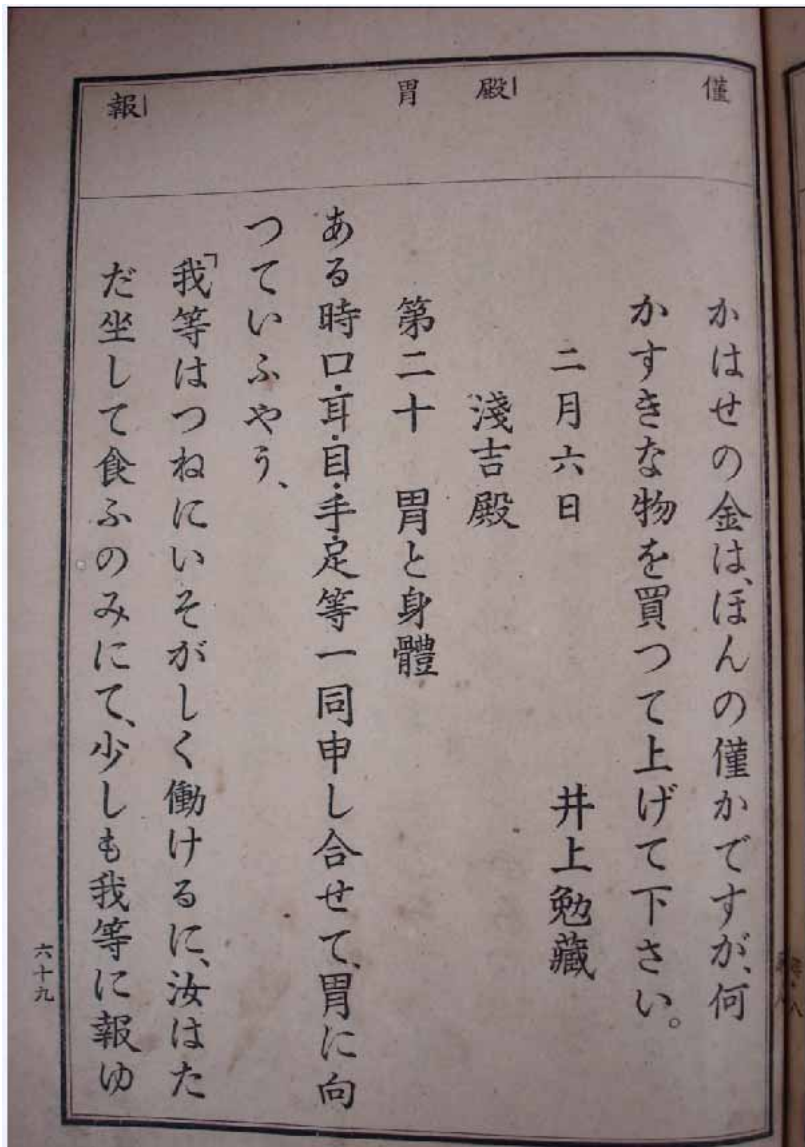 僅
殿
胃
報
かはせの金は、ほんの僅かですが、何
かすきな物を買つて上げて下さい。
二月六日　井上勉藏
淺吉殿
第二十　胃と身體
ある時口・耳・目・手・足等一同申し合せて、胃に向
つていふやう、
「我等はつねにいそがしく働けるに、汝はた
だ坐して食ふのみにて、少しも我等に報ゆ
六十九